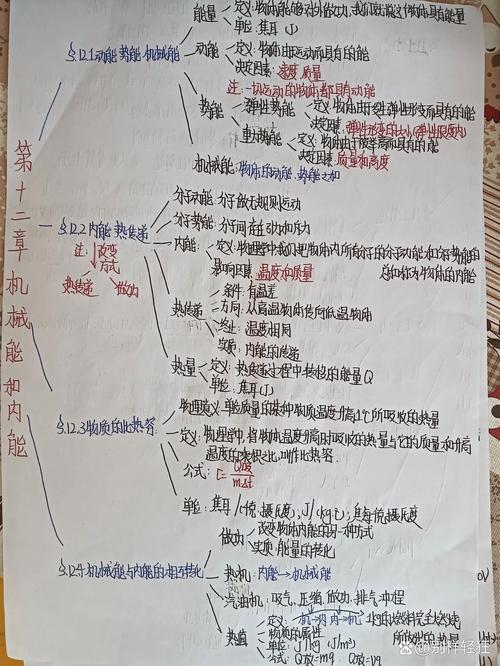 第十二章 机械能和内能
§12.1动能 势能 机械能
能量
定义:物体能够对外做功,我们就说这个物体具有能量
单位:焦耳 (J)
动能
定义:物体由于运动而具有的能
决定因素:速度 质量
注:一切运动的物体都具有动能
势能
弹性势能
定义:物体由于发生弹性形变而具有的能
决定因素:弹性形变的大小(弹性限度内)
重力势能
定义:物体由于被举高而具有的能
决定因素:质量和高度
机械能:物体的动能、势能之和
§12.2内能 热传递
注:改变方式
热传递
做功
分子动能:分子做无规则运动
分子势能:分子间存在引力和斥力
内能:
定义:物理学中我们把物体内所有分子的分子动能和分子势能的
总和称为物体的内能
影响因素:温度和质量
热传递
条件:有温差
方向:从高温物体传向低温物体
终止:温度相同
实质:内能的传递
热量
定义:热传递过程中转移的能量Q
单位:焦耳(J)
§12.3物质的比热容
物理意义:单位质量的某种物质温度升高1℃所吸收的热量
定义:物理学中,将物体温度升高时吸收的热量与它的质量和升高
温度的乘积之比,叫作比热容.
公式:C=Q吸/mΔt
单位:焦耳/(千克·摄氏度);J/(kg·℃);焦每千克摄氏度
§12.4机械能与内能的相互转化
做功
改变物体内能的另一种方式
实质:能量的转化
热机:内能→机械能
汽油机:吸气、压缩、做功、排气冲程
机→内 内→机
热值
定义:1kg的燃料完全燃烧
所放出的热量
物质的属性
单位:J/kg (J/m³)
公式:Q放=mq Q放=Vq
@别样轻狂